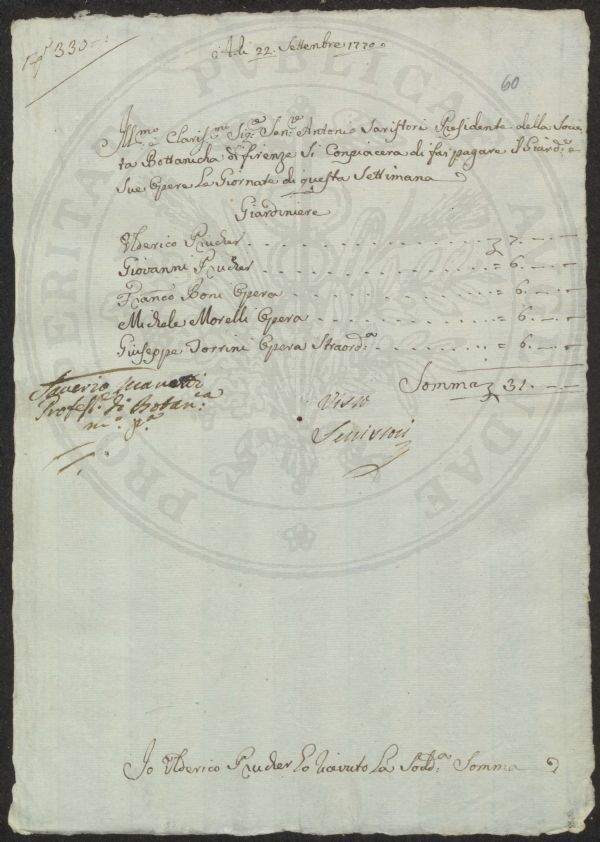 330
Adi 22. Settembre 1770
60
Ill.mo Claris.mo Sig.re Sen.re Antonio Saristori Presidente della Socie=
ta Bottanicha di firenze Si Conpiacera di far pagare il Giard.re e
Sue Opera Le Giornate di questa Settimana
Giardiniere
Ulderico Prucher 7.
Giovanni Prucher = 6.
Franco Boni Opera = 6.
Michele Morelli Opera = 6.
Giuseppe Torrini Opera Straord.a = 6.
Somma 31.
Saverio Manetti
Profess.e di Botan.ca
m.o p.a
Visto
Seristori
Io Ulderico Prucher ho ricevuto La Sodd.a Somma
PRO PUBLICA